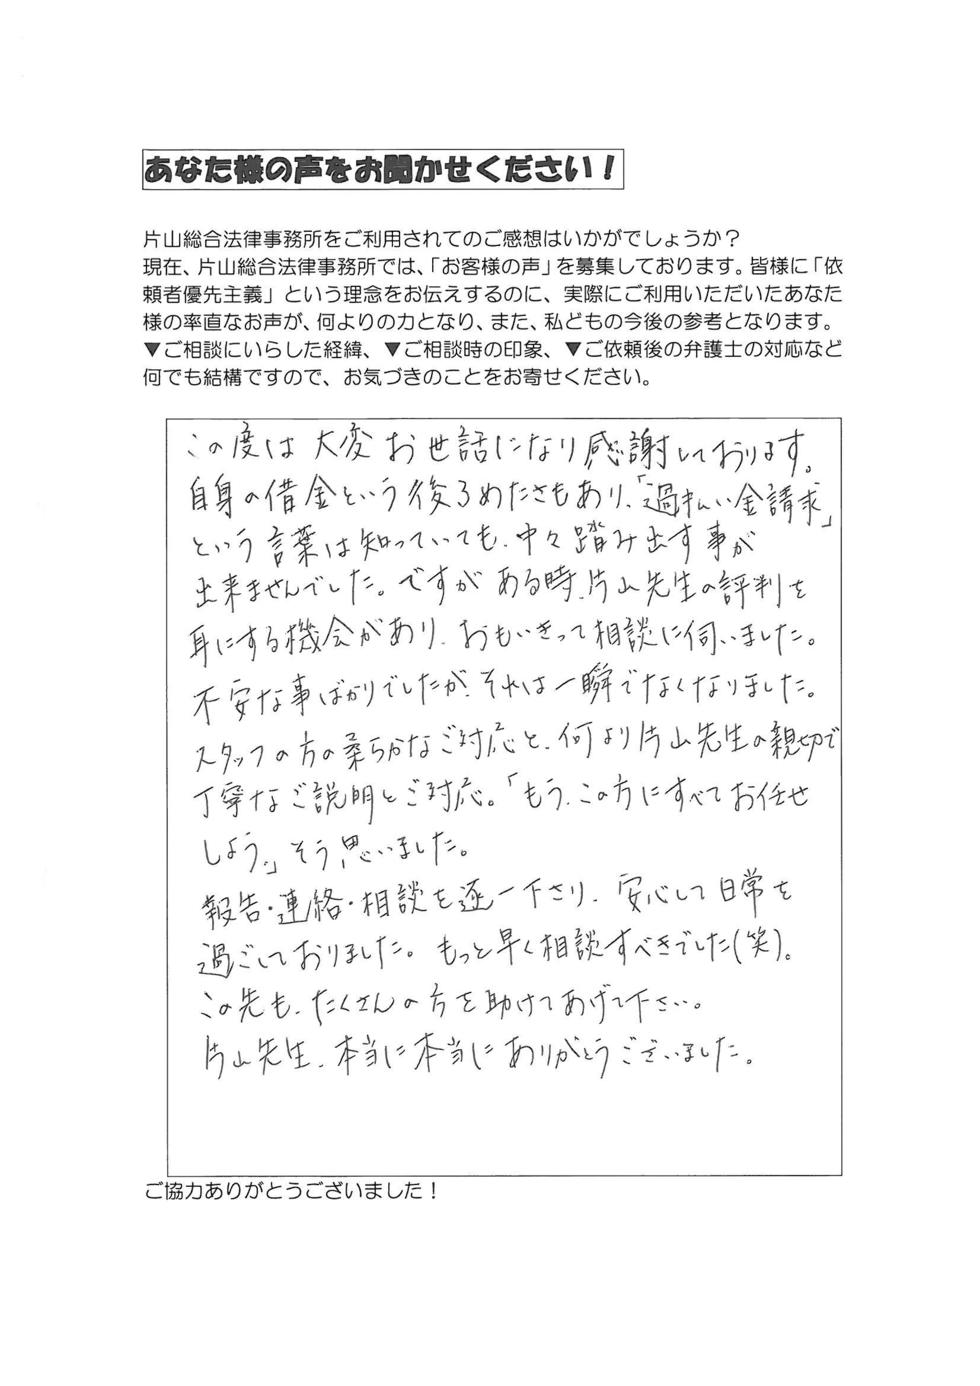 あなた様の声をお聞かせください！
片山総合法律事務所をご利用されてのご感想はいかがでしょうか？
現在、片山総合法律事務所では、「お客様の声」を募集しております。皆様に「依
頼者優先主義」という理念をお伝えするのに、実際にご利用いただいたあなた
様の率直なお声が、何よりの力となり、また、私どもの今後の参考となります。
▼ご相談にいらした経緯、▼ご相談時の印象、▼ご依頼後の弁護士の対応など
何でも結構ですので、お気づきのことをお寄せください。
この度は大変お世話になり感謝しております。
自身の借金という後ろめたさもあり、「過払い金請求」
という言葉は知っていても、中々踏み出す事が
出来ませんでした。ですがある時、片山先生の評判を
耳にする機会があり、おもいきって相談に伺いました。
不安な事ばかりでしたが、それは一瞬でなくなりました。
スタッフの方の柔らかなご対応と、何より片山先生の親切で
丁寧なご説明とご対応。「もう、この方にすべてお任せ
しよう。」そう思いました。
報告・連絡・相談を逐一下さり、安心して日常を
過ごしておりました。もっと早く相談すべきでした(笑)。
この先も、たくさんの方を助けてあげて下さい。
片山先生、本当に本当にありがとうございました。
ご協力ありがとうございました！